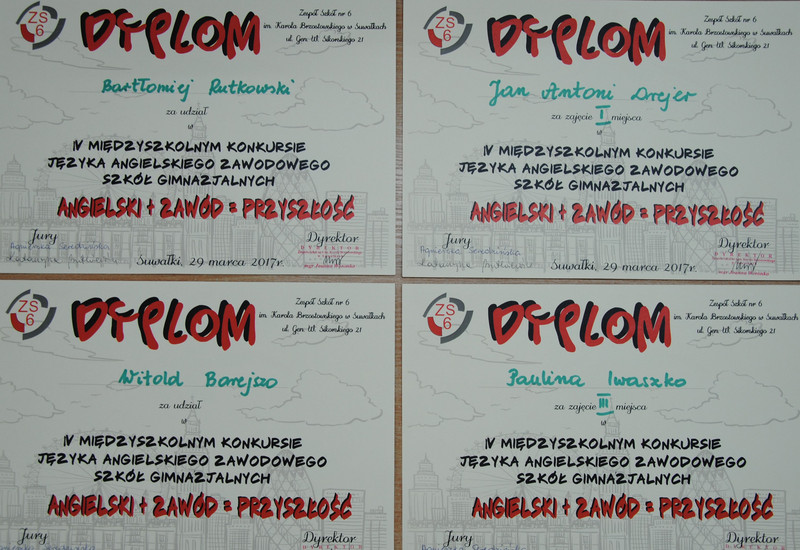 ZS
6
DYPLOM
Zespół Szkół nr 6
im. Karola Brzostowskiego w Suwałkach
ul. Gen. Wł. Sikorskiego 21
Bartłomiej Rutkowski
za udział
w
IV MIĘDZYSZKOLNYM KONKURSIE
JĘZYKA ANGIELSKIEGO ZAWODOWEGO
SZKÓŁ GIMNAZJALNYCH
ANGIELSKI + ZAWÓD = PRZYSZŁOŚĆ
Jury
Dyrektor
DYREKTOR
Suwałki, 29 marca 2017r.
ZS
6
DYPLOM
Zespół Szkół nr 6
im. Karola Brzostowskiego w Suwałkach
ul. Gen. Wł. Sikorskiego 21
Jan Antoni Drejer
za zajęcie I miejsca
w
IV MIĘDZYSZKOLNYM KONKURSIE
JĘZYKA ANGIELSKIEGO ZAWODOWEGO
SZKÓŁ GIMNAZJALNYCH
ANGIELSKI + ZAWÓD = PRZYSZŁOŚĆ
Jury
Dyrektor
DYREKTOR
Suwałki, 29 marca 2017r.
ZS
6
DYPLOM
Zespół Szkół nr 6
im. Karola Brzostowskiego w Suwałkach
ul. Gen. Wł. Sikorskiego 21
Witold Barejszo
za udział
w
IV MIĘDZYSZKOLNYM KONKURSIE
JĘZYKA ANGIELSKIEGO ZAWODOWEGO
SZKÓŁ GIMNAZJALNYCH
ANGIELSKI + ZAWÓD = PRZYSZŁOŚĆ
Jury
Dyrektor
ZS
6
DYPLOM
Zespół Szkół nr 6
im. Karola Brzostowskiego w Suwałkach
ul. Gen. Wł. Sikorskiego 21
Paulina Iwaszko
za zajęcie III miejsca
w
IV MIĘDZYSZKOLNYM KONKURSIE
JĘZYKA ANGIELSKIEGO ZAWODOWEGO
SZKÓŁ GIMNAZJALNYCH
ANGIELSKI + ZAWÓD = PRZYSZŁOŚĆ
Jury
Dyrektor